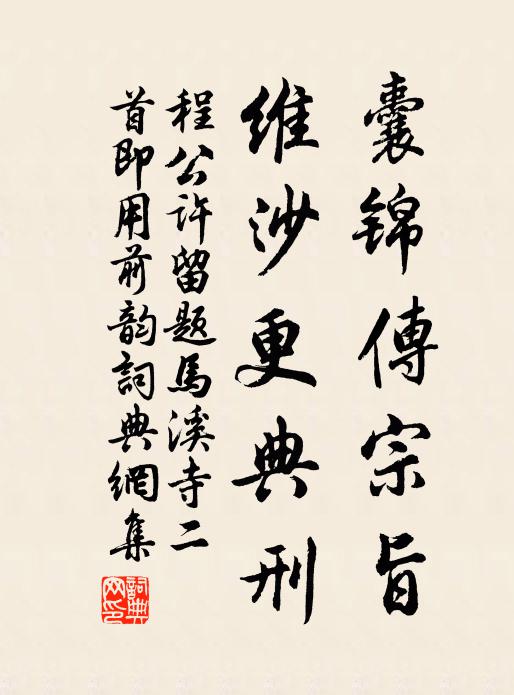 囊锦傳宗旨
維沙更典刑
程公許留題馬溪寺二
首即用前韵詞典網集